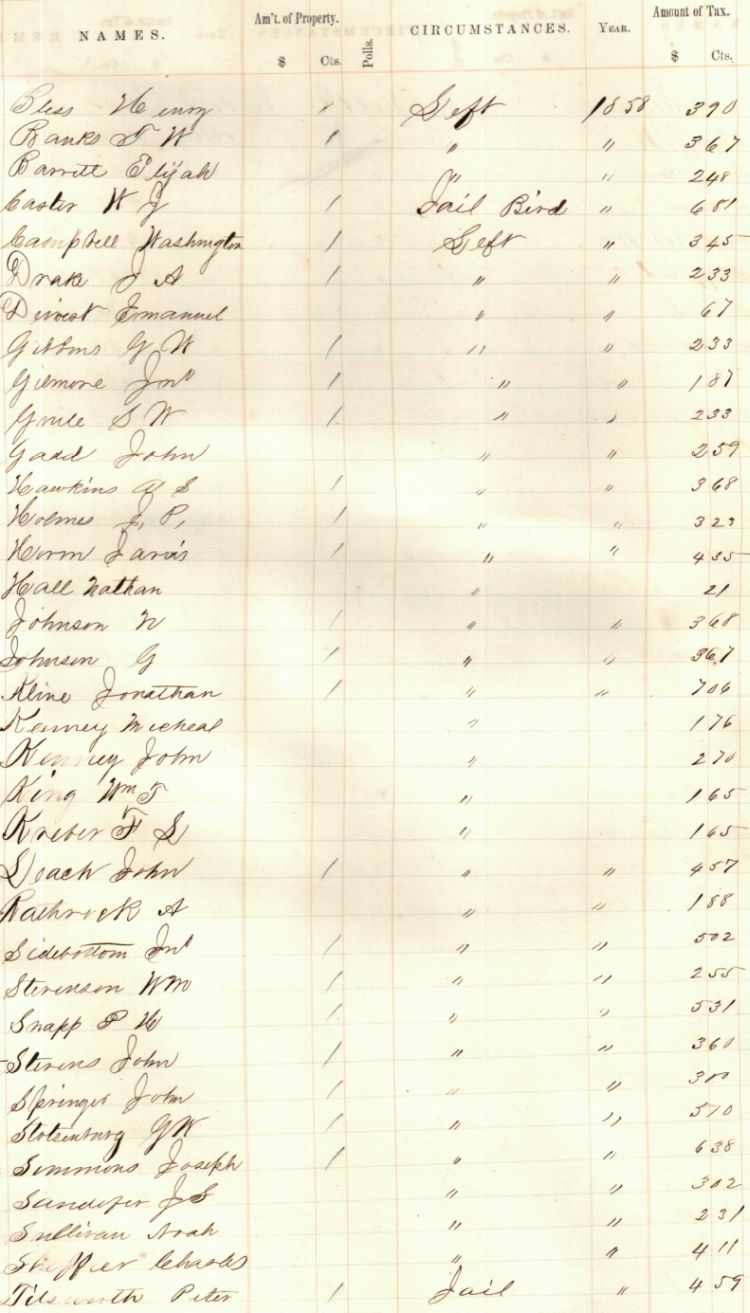 NAMES. Am't. of Property. Polls. CIRCUMSTANCES. YEAR. Amount of Tax.
$ Cts. $ Cts.
Bless Henry / Left 1858 3 90
Banks T W / " " 3 67
Barrett Elijah " " 2 48
Caster W J / Jail Bird " 6 81
Campbell Washington / Left " 3 45
Drake J A / " " 2 33
Emanuel " " 67
Gibbins G W / " " 2 33
Gilmore Jno / " " 1 87
S W / " " 2 33
Gadd John " " 2 59
Hawkins A S / " " 3 68
Holmes J. P. / " " 3 23
Jarvis / " " 4 35
Hall Nathan " 21
Johnson N / " " 3 68
Johnson G / " " 3 67
Kline Jonathan / " " 7 06
Kenney Micheal " 1 76
Kenney John " 2 70
King Wm T " 1 65
Kreber F S " 1 65
Loach John / " " 4 57
Rathrock A " " 1 88
Sidebottom Jno / " " 5 02
Stevenson Wm / " " 2 55
Snapp P H / " " 5 31
Stevens John / " " 3 60
Springer John / " " 3 00
Stotsenburg G W / " " 5 10
Simmons Joseph / " " 6 38
Sandifer J S " " 3 02
Sullivan Noah " " 2 31
Charles " " 4 11
Tilsworth Peter / Jail " 4 59